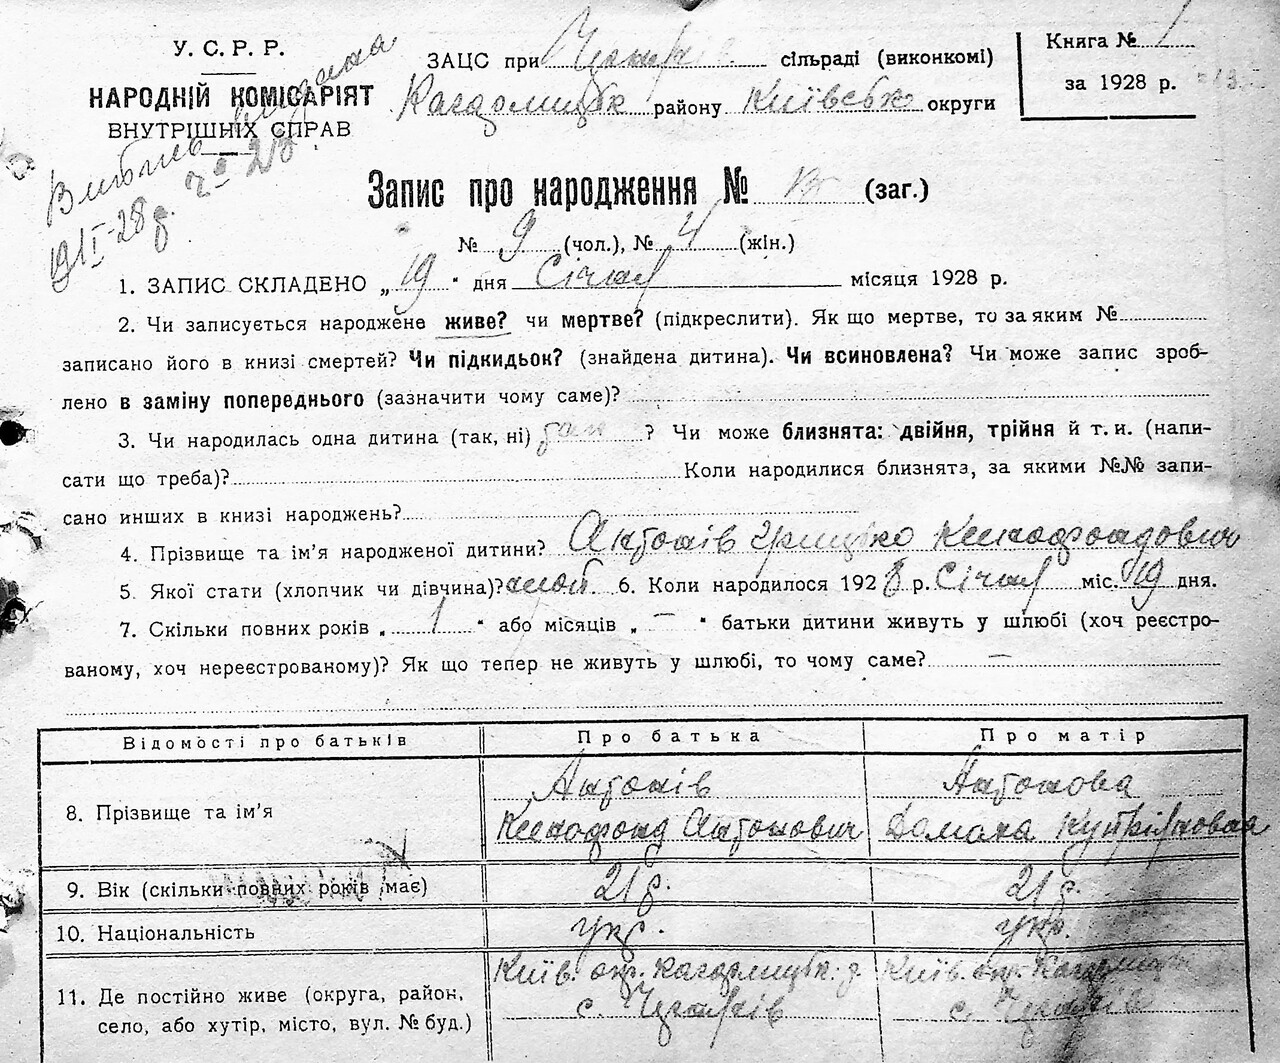 У. С. Р. Р.
НАРОДНІЙ КОМІСАРІЯТ
ВНУТРІШНІХ СПРАВ
Витяг видана
19/I-28 р. ч⁰ 23
ЗАЦС при сільраді (виконкомі)
Кагарлицьк району Київськ округи
Книга № 1
за 1928 р.
Запис про народження № 13 (заг.)
№ 9 (чол.), № 4 (жін.)
1. ЗАПИС СКЛАДЕНО „ 19 " дня Січня місяця 1928 р.
2. Чи записується народжене живе? чи мертве? (підкреслити). Як що мертве, то за яким №
записано його в книзі смертей? Чи підкидьок? (знайдена дитина). Чи всиновлена? Чи може запис зроб-
лено в заміну попереднього (зазначити чому саме)?
3. Чи народилась одна дитина (так, ні) так ? Чи може близнята: двійня, трійня й т. и. (напи-
сати що треба)? Коли народилися близнята, за якими №№ запи-
сано инших в книзі народжень?
4. Прізвище та ім'я народженої дитини? Антонів Грицько Ксенофондович
5. Якої стати (хлопчик чи дівчина)? 6. Коли народилося 1928 р. Січня міс. 19 дня.
7. Скільки повних років „ 1 " або місяців „ — " батьки дитини живуть у шлюбі (хоч реєстро-
ваному, хоч нереєстрованому)? Як що тепер не живуть у шлюбі, то чому саме? —
Відомості про батьків Про батька Про матір
8. Прізвище та ім'я Антонів Ксенофонд Антонович Антонова Домаха Купріяновна
9. Вік (скільки повних років має) 21 р. 21 р.
10. Національність укр. укр.
11. Де постійно живе (округа, район, Київ. окр. Кагарлицьк. р. Київ. окр.
село, або хутір, місто, вул. № буд.) с. с.